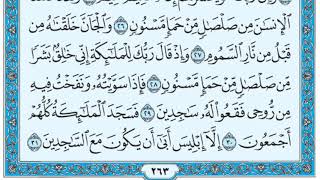 الْإِنسَٰنَ مِن صَلْصَٰلٍ مِّنْ حَمَإٍ مَّسْنُونٍ ٢٦ وَالْجَآنَّ خَلَقْنَٰهُ مِن
قَبْلُ مِن نَّارِ السَّمُومِ ٢٧ وَإِذْ قَالَ رَبُّكَ لِلْمَلَٰٓئِكَةِ إِنِّي خَٰلِقٌۢ بَشَرًا
مِّن صَلْصَٰلٍ مِّنْ حَمَإٍ مَّسْنُونٍ ٢٨ فَإِذَا سَوَّيْتُهُۥ وَنَفَخْتُ فِيهِ
مِن رُّوحِي فَقَعُوا۟ لَهُۥ سَٰجِدِينَ ٢٩ فَسَجَدَ الْمَلَٰٓئِكَةُ كُلُّهُمْ
أَجْمَعُونَ ٣٠ إِلَّآ إِبْلِيسَ أَبَىٰٓ أَن يَكُونَ مَعَ السَّٰجِدِينَ ٣١
٢٦٣